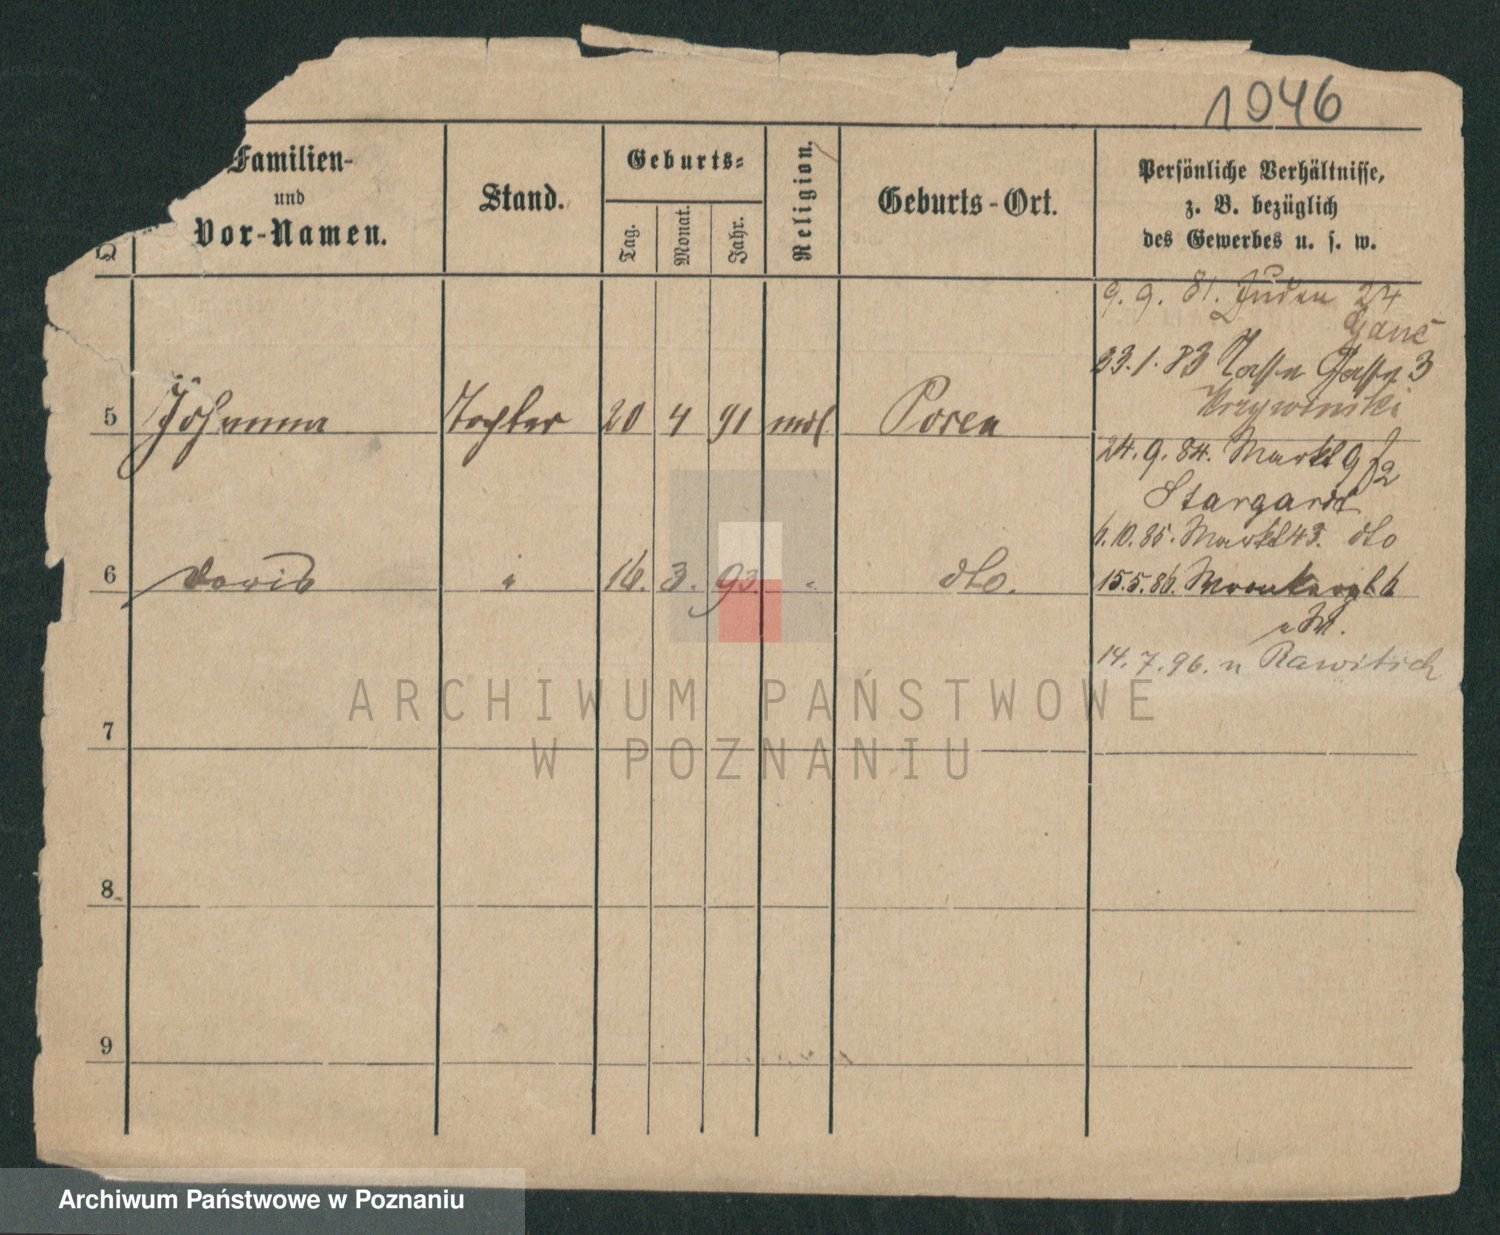 1046
Familien-
und
Vor-Namen.
Stand.
Geburts-
Tag.
Monat.
Jahr.
Religion.
Geburts-Ort.
Persönliche Verhältnisse,
z. B. bezüglich
des Gewerbes u. s. w.
9. 9. 81. Juden 24
23. 1. 83 Nasse Gasse 3
Krzywinski
5 Johanna Tochter 20 4 91 mos Posen
24. 9. 84. Markt 9
Stargardt
6. 10. 85. Markt 43. dto
6 Doris " 16. 3. 93. " dto.
15. 5. 86. Wronkerpl 6
14. 7. 96. n Rawitsch
7
8
9
ARCHIWUM PAŃSTWOWE
W POZNANIU
Archiwum Państwowe w Poznaniu